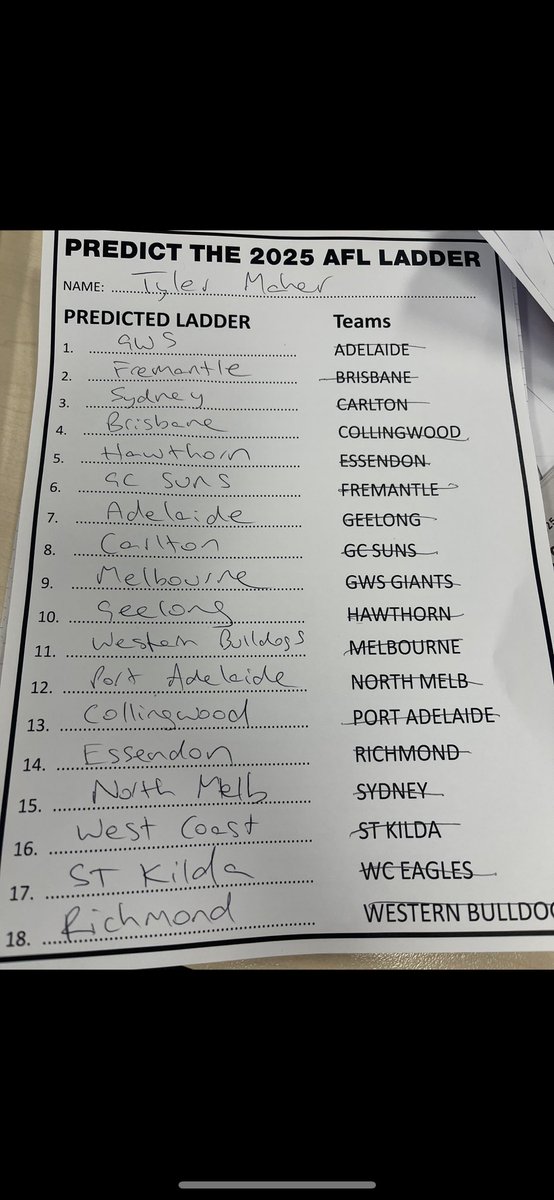 PREDICT THE 2025 AFL LADDER
NAME: Tyler Maher
PREDICTED LADDER Teams
1. GWS ADELAIDE
2. Fremantle BRISBANE
3. Sydney CARLTON
4. Brisbane COLLINGWOOD
5. Hawthorn ESSENDON
6. GC SUNS FREMANTLE
7. Adelaide GEELONG
8. Carlton GC SUNS
9. Melbourne GWS GIANTS
10. Geelong HAWTHORN
11. Western Bulldogs MELBOURNE
12. Port Adelaide NORTH MELB
13. Collingwood PORT ADELAIDE
14. Essendon RICHMOND
15. North Melb SYDNEY
16. West Coast ST KILDA
17. ST Kilda WC EAGLES
18. Richmond WESTERN BULLDO